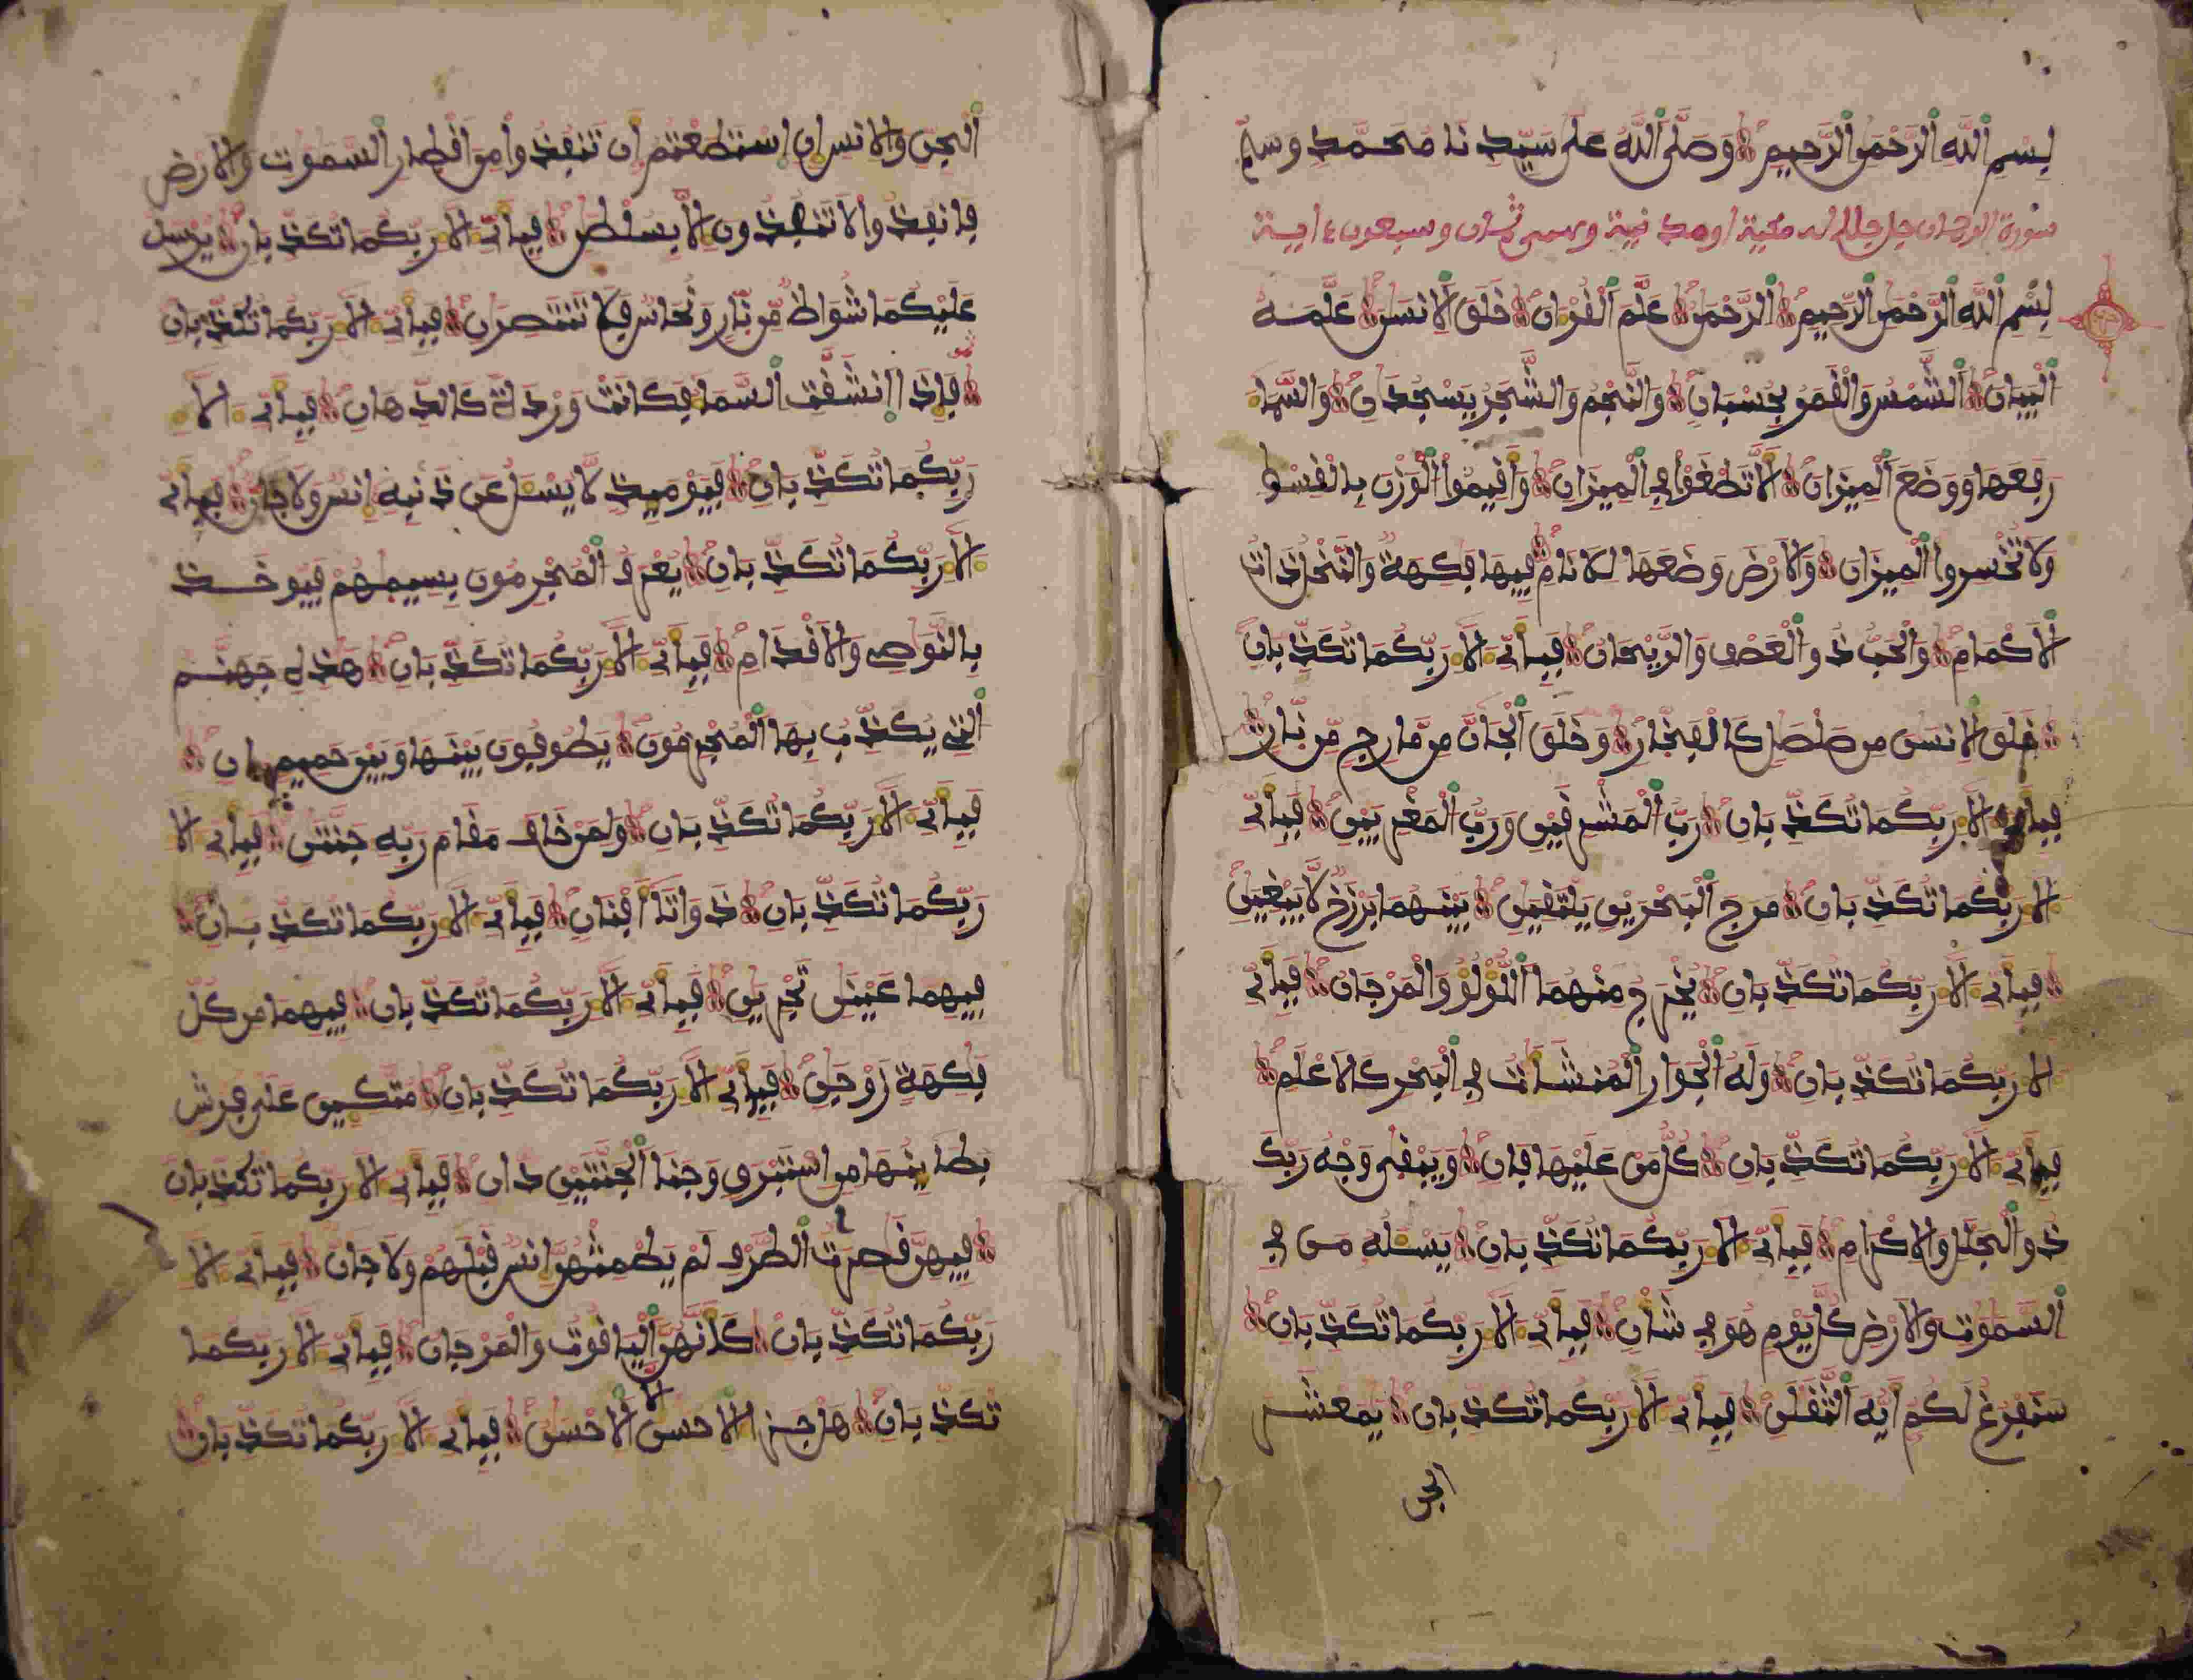 بِسْمِ اللَّهِ الرَّحْمَنِ الرَّحِيمِ وَصَلَّى اللَّهُ عَلَى سَيِّدِنَا مُحَمَّدٍ وَسَلَّمَ
سورة الرحمان جل جلاله مكية او مدنية وهي ثمان وسبعون ءاية
بِسْمِ اللَّهِ الرَّحْمَنِ الرَّحِيمِ الرَّحْمَنُ عَلَّمَ الْقُرْءَانَ خَلَقَ الِانسَنَ عَلَّمَهُ
الْبَيَانَ الشَّمْسُ وَالْقَمَرُ بِحُسْبَانٍ وَالنَّجْمُ وَالشَّجَرُ يَسْجُدَانِ وَالسَّمَاءَ
رَفَعَهَا وَوَضَعَ الْمِيزَانَ أَلَّا تَطْغَوْا فِي الْمِيزَانِ وَأَقِيمُوا الْوَزْنَ بِالْقِسْطِ
وَلَا تُخْسِرُوا الْمِيزَانَ وَالَارْضَ وَضَعَهَا لِلَانَامِ فِيهَا فَكِهَةٌ وَالنَّخْلُ ذَاتُ
الَاكْمَامِ وَالْحَبُّ ذُو الْعَصْفِ وَالرَّيْحَانُ فَبِأَيِّ ءَالَاءِ رَبِّكُمَا تُكَذِّبَانِ
خَلَقَ الِانسَنَ مِن صَلْصَلٍ كَالْفَخَّارِ وَخَلَقَ الْجَانَّ مِن مَّارِجٍ مِّن نَّارٍ
فَبِأَيِّ ءَالَاءِ رَبِّكُمَا تُكَذِّبَانِ رَبُّ الْمَشْرِقَيْنِ وَرَبُّ الْمَغْرِبَيْنِ فَبِأَيِّ
ءَالَاءِ رَبِّكُمَا تُكَذِّبَانِ مَرَجَ الْبَحْرَيْنِ يَلْتَقِيَنِ بَيْنَهُمَا بَرْزَخٌ لَّا يَبْغِيَنِ
فَبِأَيِّ ءَالَاءِ رَبِّكُمَا تُكَذِّبَانِ يُخْرَجُ مِنْهُمَا اللُّؤْلُؤُ وَالْمَرْجَانُ فَبِأَيِّ
ءَالَاءِ رَبِّكُمَا تُكَذِّبَانِ وَلَهُ الْجَوَارِ الْمُنشَئَاتُ فِي الْبَحْرِ كَالَاعْلَمِ
فَبِأَيِّ ءَالَاءِ رَبِّكُمَا تُكَذِّبَانِ كُلُّ مَنْ عَلَيْهَا فَانٍ وَيَبْقَى وَجْهُ رَبِّكَ
ذُو الْجَلَلِ وَالِاكْرَامِ فَبِأَيِّ ءَالَاءِ رَبِّكُمَا تُكَذِّبَانِ يَسْئَلُهُ مَن فِي
السَّمَوَتِ وَالَارْضِ كُلَّ يَوْمٍ هُوَ فِي شَأْنٍ فَبِأَيِّ ءَالَاءِ رَبِّكُمَا تُكَذِّبَانِ
سَنَفْرُغُ لَكُمْ أَيُّهَ الثَّقَلَنِ فَبِأَيِّ ءَالَاءِ رَبِّكُمَا تُكَذِّبَانِ يَمَعْشَرَ
الجن
الْجِنِّ وَالِانسِ إِنِ اسْتَطَعْتُمْ أَن تَنفُذُوا مِنَ اَقْطَارِ السَّمَوَتِ وَالَارْضِ
فَانفُذُوا لَا تَنفُذُونَ إِلَّا بِسُلْطَنٍ فَبِأَيِّ ءَالَاءِ رَبِّكُمَا تُكَذِّبَانِ يُرْسَلُ
عَلَيْكُمَا شُوَاظٌ مِّن نَّارٍ وَنُحَاسٌ فَلَا تَنتَصِرَانِ فَبِأَيِّ ءَالَاءِ رَبِّكُمَا تُكَذِّبَانِ
فَإِذَا انشَقَّتِ السَّمَاءُ فَكَانَتْ وَرْدَةً كَالدِّهَانِ فَبِأَيِّ ءَالَاءِ
رَبِّكُمَا تُكَذِّبَانِ فَيَوْمَئِذٍ لَّا يُسْئَلُ عَن ذَنبِهِ إِنسٌ وَلَا جَانٌّ فَبِأَيِّ
ءَالَاءِ رَبِّكُمَا تُكَذِّبَانِ يُعْرَفُ الْمُجْرِمُونَ بِسِيمَهُمْ فَيُوخَذُ
بِالنَّوَاصِي وَالَاقْدَامِ فَبِأَيِّ ءَالَاءِ رَبِّكُمَا تُكَذِّبَانِ هَذِهِ جَهَنَّمُ
الَّتِي يُكَذِّبُ بِهَا الْمُجْرِمُونَ يَطُوفُونَ بَيْنَهَا وَبَيْنَ حَمِيمٍ ءَانٍ
فَبِأَيِّ ءَالَاءِ رَبِّكُمَا تُكَذِّبَانِ وَلِمَنْ خَافَ مَقَامَ رَبِّهِ جَنَّتَنِ فَبِأَيِّ ءَالَاءِ
رَبِّكُمَا تُكَذِّبَانِ ذَوَاتَا أَفْنَانٍ فَبِأَيِّ ءَالَاءِ رَبِّكُمَا تُكَذِّبَانِ
فِيهِمَا عَيْنَنِ تَجْرِيَنِ فَبِأَيِّ ءَالَاءِ رَبِّكُمَا تُكَذِّبَانِ فِيهِمَا مِن كُلِّ
فَكِهَةٍ زَوْجَنِ فَبِأَيِّ ءَالَاءِ رَبِّكُمَا تُكَذِّبَانِ مُتَّكِئِينَ عَلَى فُرُشٍ
بَطَائِنُهَا مِنِ اسْتَبْرَقٍ وَجَنَا الْجَنَّتَيْنِ دَانٍ فَبِأَيِّ ءَالَاءِ رَبِّكُمَا تُكَذِّبَانِ
فِيهِنَّ قَصِرَتُ الطَّرْفِ لَمْ يَطْمِثْهُنَّ إِنسٌ قَبْلَهُمْ وَلَا جَانٌّ فَبِأَيِّ ءَالَاءِ
رَبِّكُمَا تُكَذِّبَانِ كَأَنَّهُنَّ الْيَاقُوتُ وَالْمَرْجَانُ فَبِأَيِّ ءَالَاءِ رَبِّكُمَا
تُكَذِّبَانِ هَلْ جَزَاءُ الِاحْسَنِ إِلَّا الِاحْسَنُ فَبِأَيِّ ءَالَاءِ رَبِّكُمَا تُكَذِّبَانِ